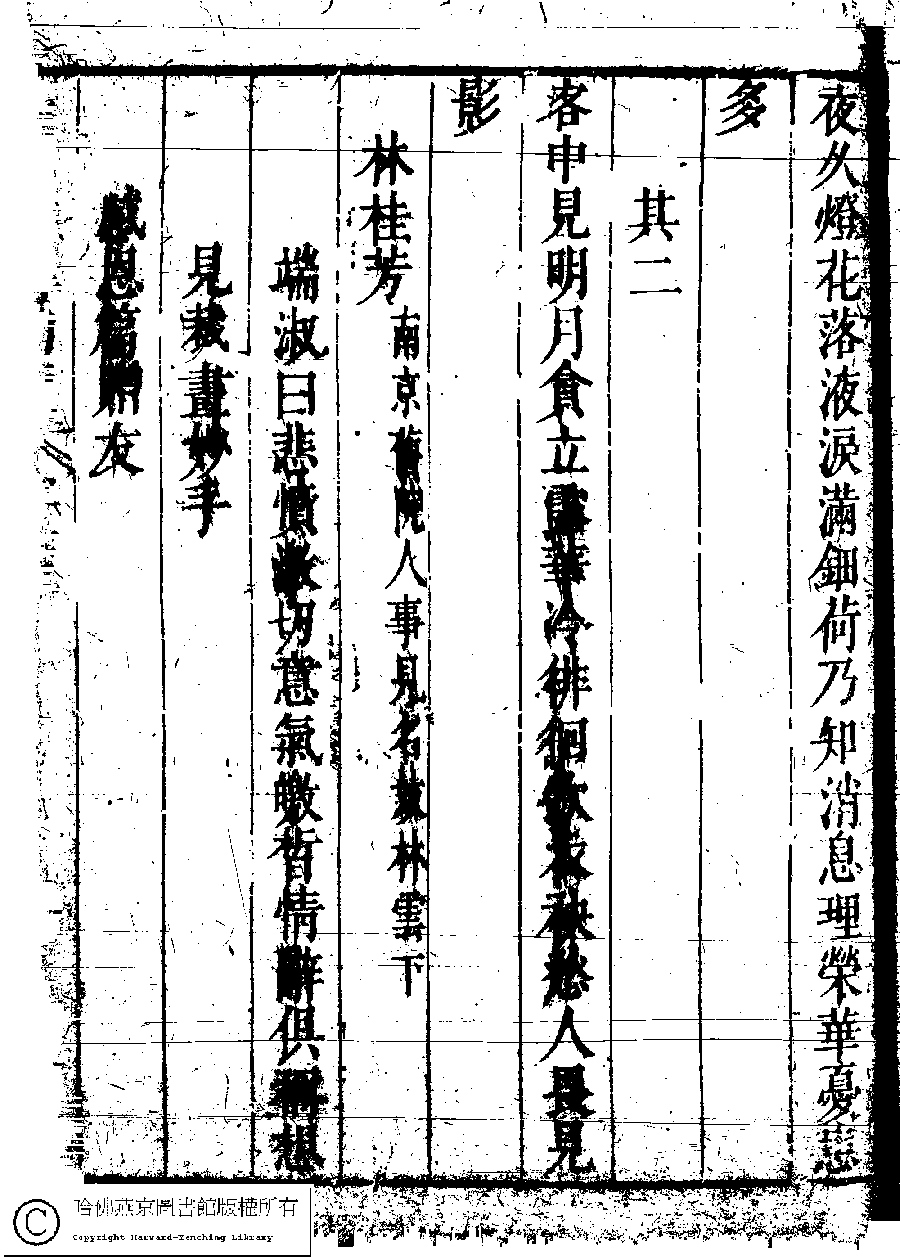 夜久燈花落液淚滿鈿荷乃知消息理榮華憂愁
多
其二
客中見明月貪立露華冷徘徊斂衣袂愁人畏見
影
林桂芳南京舊院人事見名葉林雲下
端淑曰悲憤激切意氣皦皙情辭俱稱想
見裁畫妙手
感恩篇贈友
哈佛燕京圖書館版權所有
Copyright Harvard-Yenching Library